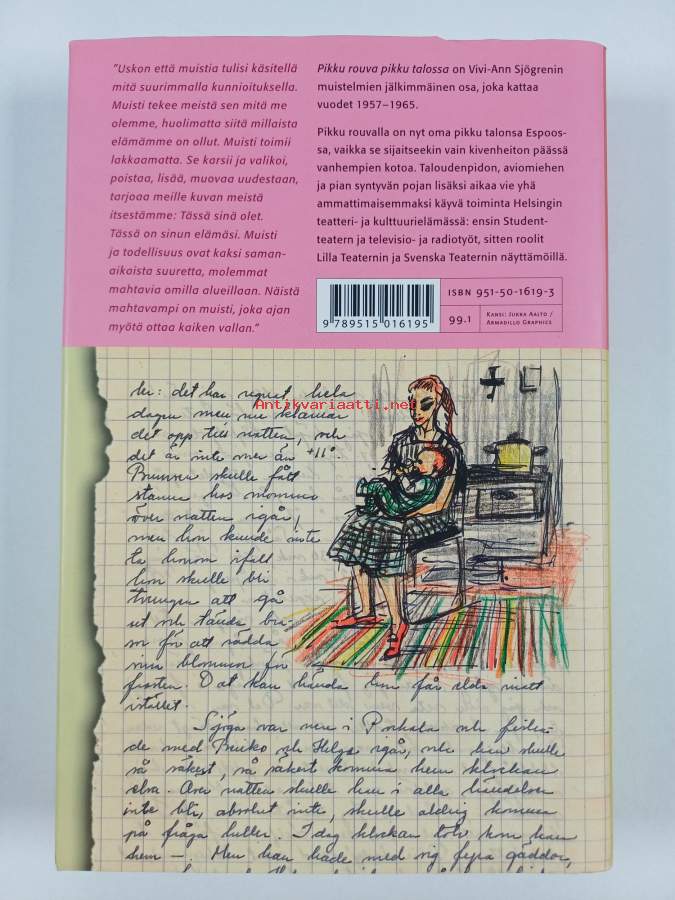 ”Uskon että muistia tulisi käsitellä
mitä suurimmalla kunnioituksella.
Muisti tekee meistä sen mitä me
olemme, huolimatta siitä millaista
elämämme on ollut. Muisti toimii
lakkaamatta. Se karsii ja valikoi,
poistaa, lisää, muovaa uudestaan,
tarjoaa meille kuvan meistä
itsestämme: Tässä sinä olet.
Tässä on sinun elämäsi. Muisti
ja todellisuus ovat kaksi saman-
aikaista suuretta, molemmat
mahtavia omilla alueillaan. Näistä
mahtavampi on muisti, joka ajan
myötä ottaa kaiken vallan.”
Pikku rouva pikku talossa on Vivi-Ann Sjögrenin
muistelmien jälkimmäinen osa, joka kattaa
vuodet 1957–1965.
Pikku rouvalla on nyt oma pikku talonsa Espoos-
sa, vaikka se sijaitseekin vain kivenheiton päässä
vanhempien kotoa. Taloudenpidon, aviomiehen
ja pian syntyvän pojan lisäksi aikaa vie yhä
ammattimaisemmaksi käyvä toiminta Helsingin
teatteri- ja kulttuurielämässä: ensin Student-
teatern ja televisio- ja radiotyöt, sitten roolit
Lilla Teaternin ja Svenska Teaternin näyttämöillä.
9 789515 016195
ISBN 951-50-1619-3
99.1
Kansi: Jukka Aalto /
Armadillo Graphics
Antikvariaatti.net
det har regnat hela
dagen men nu klarnar
det opp till natten, och
det är inte mer än +11°.
skulle fått
stanna hos mommo
över natten igår,
men hon kunde inte
ta honom ifall
hon skulle bli
tvungen att gå
ut och tända
för att rädda
sina blommor för
frosten. Det kan hända hon får elda inatt
istället.
Sjöga var nere i Porkala och
de med och Helge igår, och han skulle
så säkert, så säkert komma hem klockan
elva. Över natten skulle han i alla händelser
inte bli, absolut inte, skulle aldrig komma
på fråga heller. Idag klockan tolv kom han
hem —. Men han hade med sig fyra gäddor,